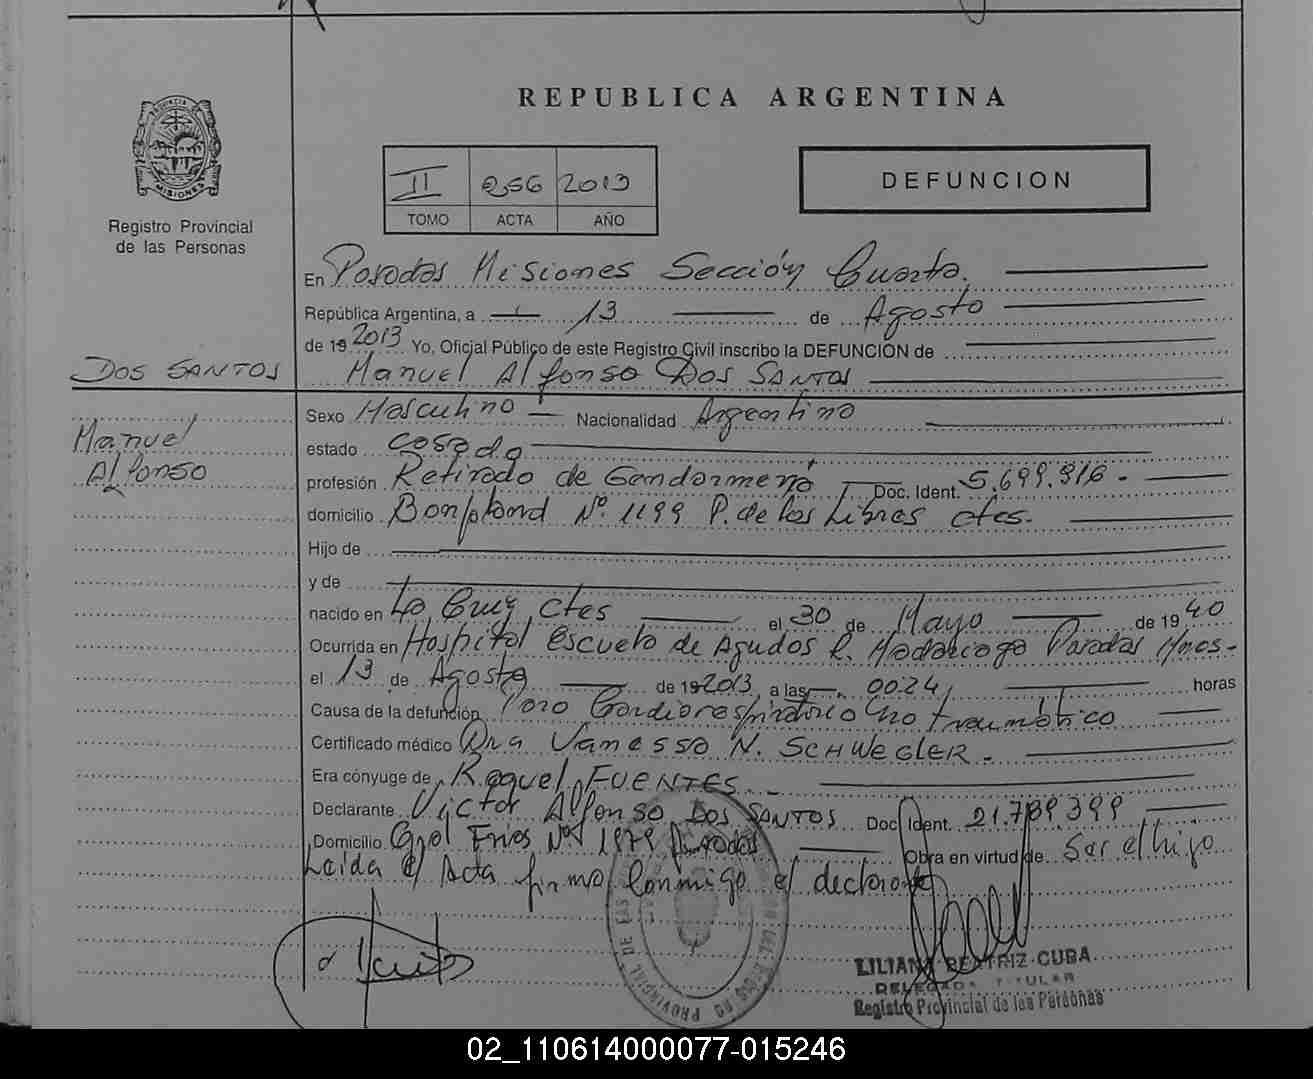 REPUBLICA ARGENTINA
PROVINCIA DE MISIONES
Registro Provincial
de las Personas
II 256 2013
TOMO ACTA AÑO
DEFUNCION
En Posadas Misiones Sección Cuarta.
República Argentina, a 13 de Agosto
de 19 2013 Yo, Oficial Público de este Registro Civil inscribo la DEFUNCION de
DOS SANTOS
Manuel Alfonso DOS SANTOS
Sexo Masculino Nacionalidad Argentino
Manuel
Alfonso
estado casado
profesión Retirado de Gendarmería Doc. Ident. 5.699.916.-
domicilio Bonpland Nº 1199 P. de los Libres Ctes.
Hijo de
y de
nacido en La Cruz Ctes el 30 de Mayo de 19 40
Ocurrida en Hospital Escuela de Agudos R. Madariaga Posadas Mnes.-
el 13 de Agosto de 19 2013 a las 0024 horas
Causa de la defunción Paro Cardiorespiratorio no traumático
Certificado médico Dra Vanessa N. SCHWEGLER.-
Era cónyuge de Raquel FUENTES.-
Declarante Victor Alfonso DOS SANTOS Doc. Ident. 21.789.399
Domicilio Gral Frias Nº 1979 Posadas Obra en virtud de Ser el hijo
Leída el Acta firma conmigo el declarante
LILIANA BEATRIZ CUBA
DELEGADA TITULAR
Registro Provincial de las Personas
02_110614000077-015246